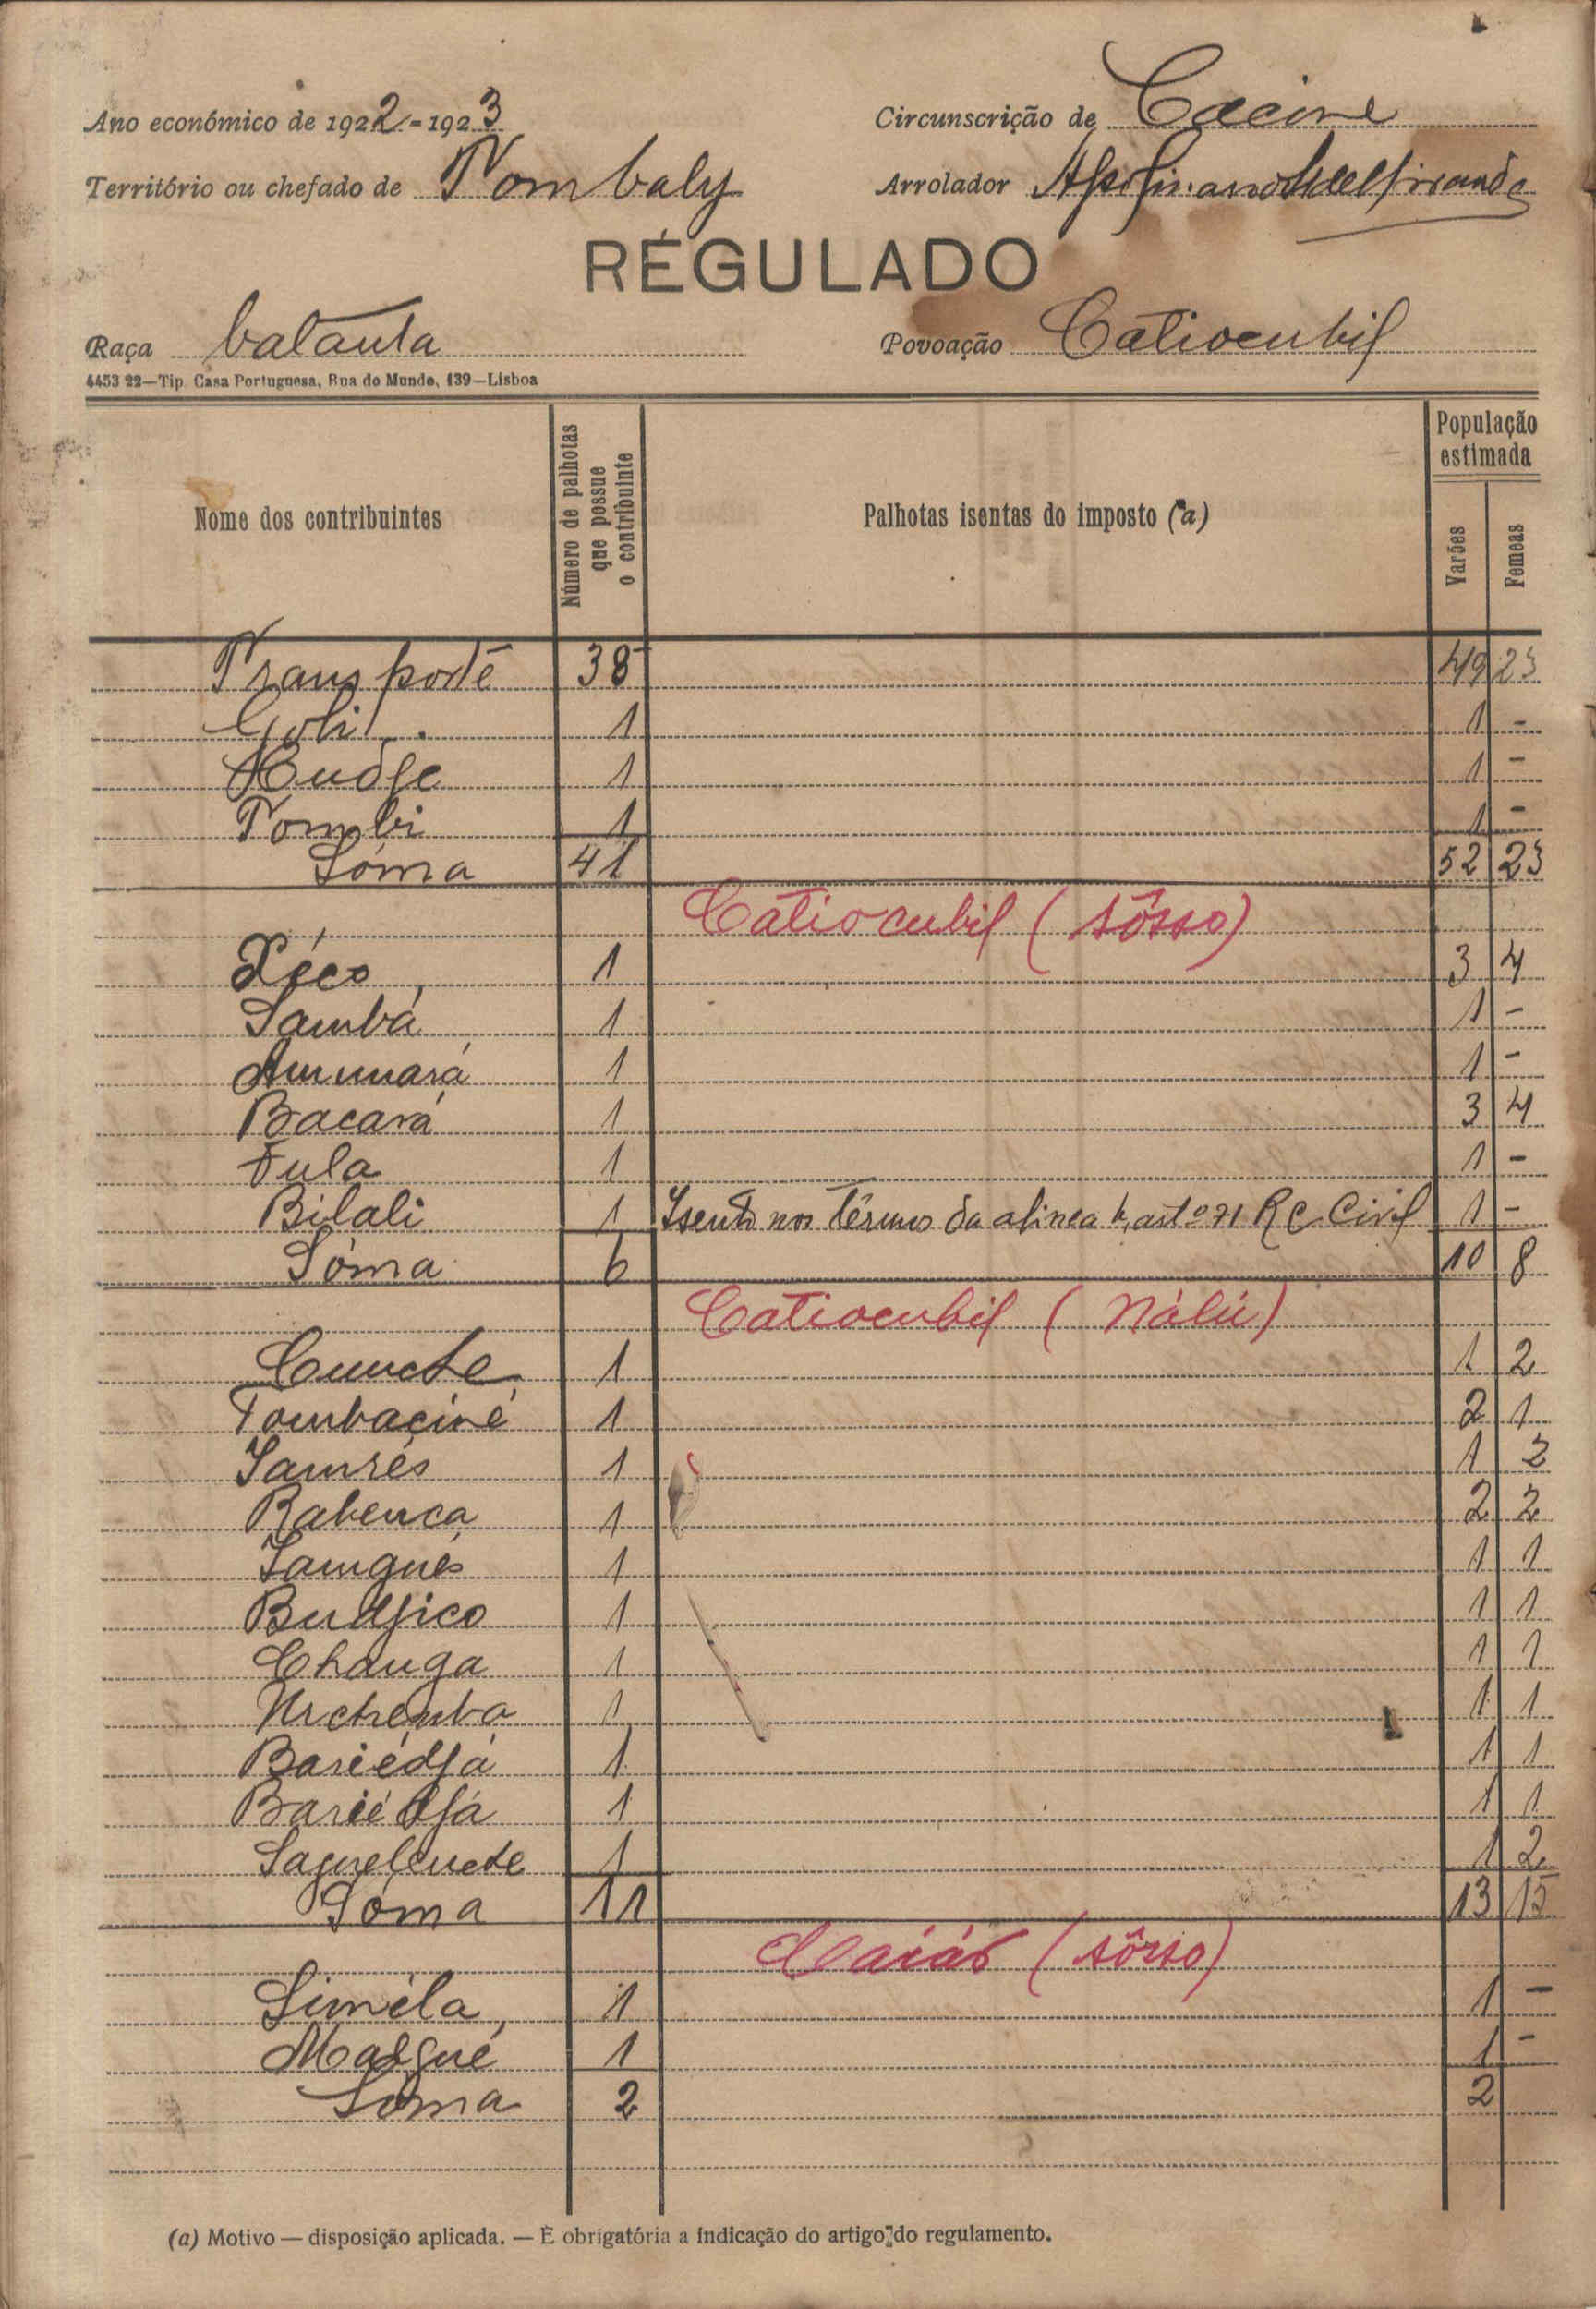 Ano económico de 1922-1923
Circunscrição de Cacine
Território ou chefado de Tombaly
Arrolador
RÉGULADO
Raça balanta
Povoação Catiocubil
4453 22—Tip. Casa Portuguesa, Rua do Mundo, 139—Lisboa
Nome dos contribuintes
Número de palhotas que possue o contribuinte
Palhotas isentas do imposto (a)
População estimada
Varões
Femeas
Transporte 38 49 23
Gobi 1 1 -
1 1 -
Tombi 1 1 -
Sóma 41 52 23
Catiocubil (sôsso)
Xéco 1 3 4
Sambá 1 1 -
Amunará 1 1 -
Bacará 1 3 4
Fula 1 1 -
Bilali 1 Isento nos têrmos da alinea b, artº 71 R C Civil 1 -
Sóma 6 10 8
Catiocubil (Nálú)
Cuncte 1 1 2
Tombaciné 1 2 1
Iamrés 1 1 2
Rabenca 1 2 2
Iamgués 1 1 1
Budjico 1 1 1
Changa 1 1 1
1 1 1
Bariédjá 1 1 1
Bariédjá 1 1 1
1 1 2
Sóma 11 13 15
Caiás (sôsso)
Siméla 1 1 -
Madgué 1 1 -
Sóma 2 2
(a) Motivo — disposição aplicada. — É obrigatória a indicação do artigo do regulamento.